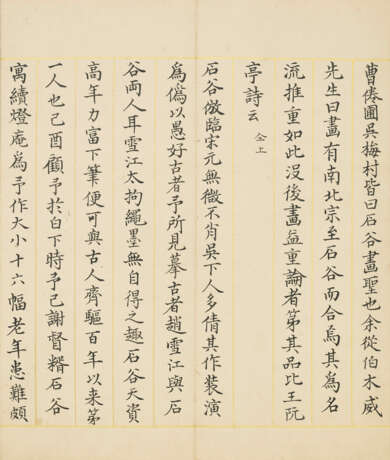 曹倦圃吳梅村皆曰石谷畫聖也余從伯木威
先生曰畫有南北宗至石谷而合焉其為名
流推重如此沒後畫益重論者第其品比王阮
亭詩云 仝上
石谷倣臨宋元無微不肖吳下人多倩其作裝演
為偽以愚好古者予所見摹古者趙雪江與石
谷兩人耳雪江太拘繩墨無自得之趣石谷天資
高年力富下筆便可與古人齊驅百年以來第
一人也己酉顧予於白下時予已謝督糈石谷
寓續燈庵為予作大小十六幅老年患難頗